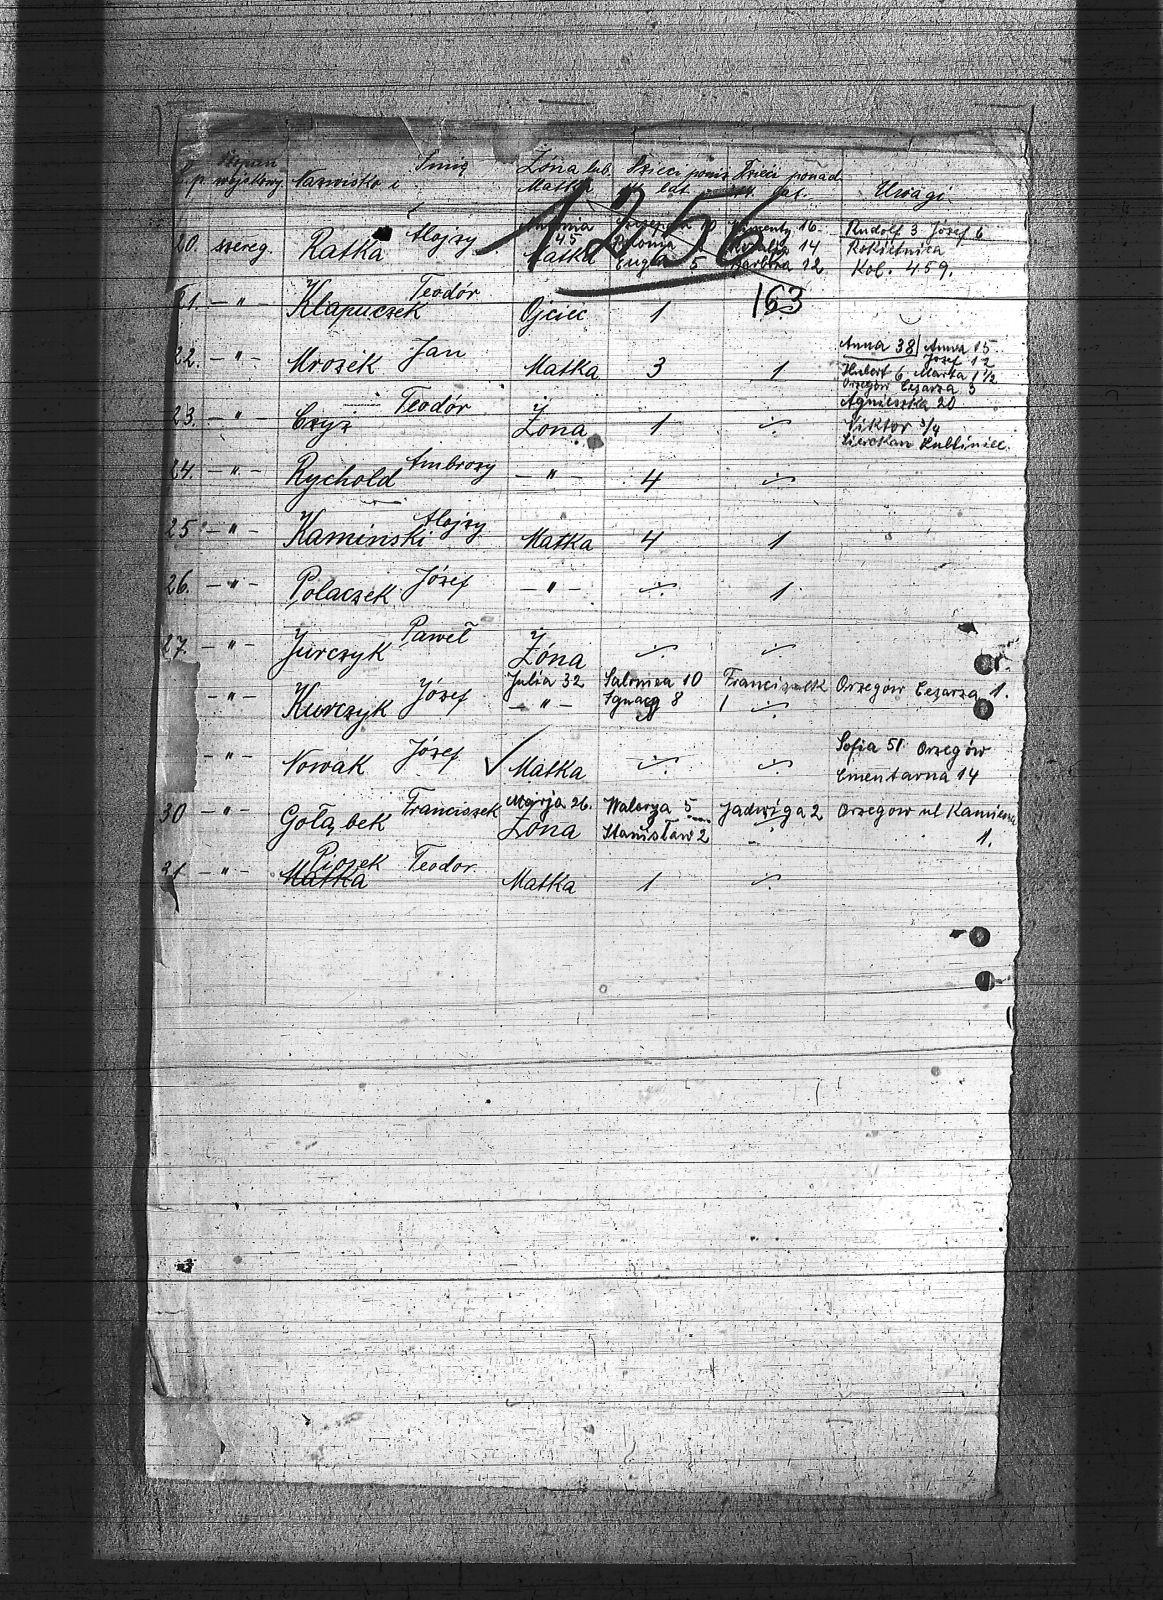 p. wojskowy Nazwisko i Imię Żona lub Matka Dzieci poniż. lat Dzieci ponad lat Uwagi
1256
163
20. szereg. Ratka Alojzy Antonia 45 Matka 16 14 Barbara 12 Rudolf 3 Józef 6
Rokietnica
Kol. 459.
21. — " — Klapuczek Teodór Ojciec 1
22. — " — Mrozik Jan Matka 3 1 Anna 38 Anna 15
Józef 12
Hubert 6 Marta 1 1/2
Orzegów Cesarza 5
23. — " — Czyż Teodór Żona 1 Agnieszka 20
Wiktor 3/4
Lubliniec
24. — " — Rychold Ambrozy — " — 4
25 — " — Kaminski Alojzy Matka 4 1
26. — " — Polaczek Józef — " — 1
27. — " — Jurczyk Paweł Żóna
— " — Kurczyk Józef Julia 32 — " — Salomea 10 Ignacy 8 Franciszek 1 Orzegów Cesarza 1.
— " — Nowak Józef Matka Sofia 51 Orzegów
Cmentarna 14
30 — " — Gołąbek Franciszek Marja 26. Żona Stanisław 2 Jadwiga 2 Orzegów ul Kamienna
1.
31 — " — Piozek Teodor Matka 1
Matka